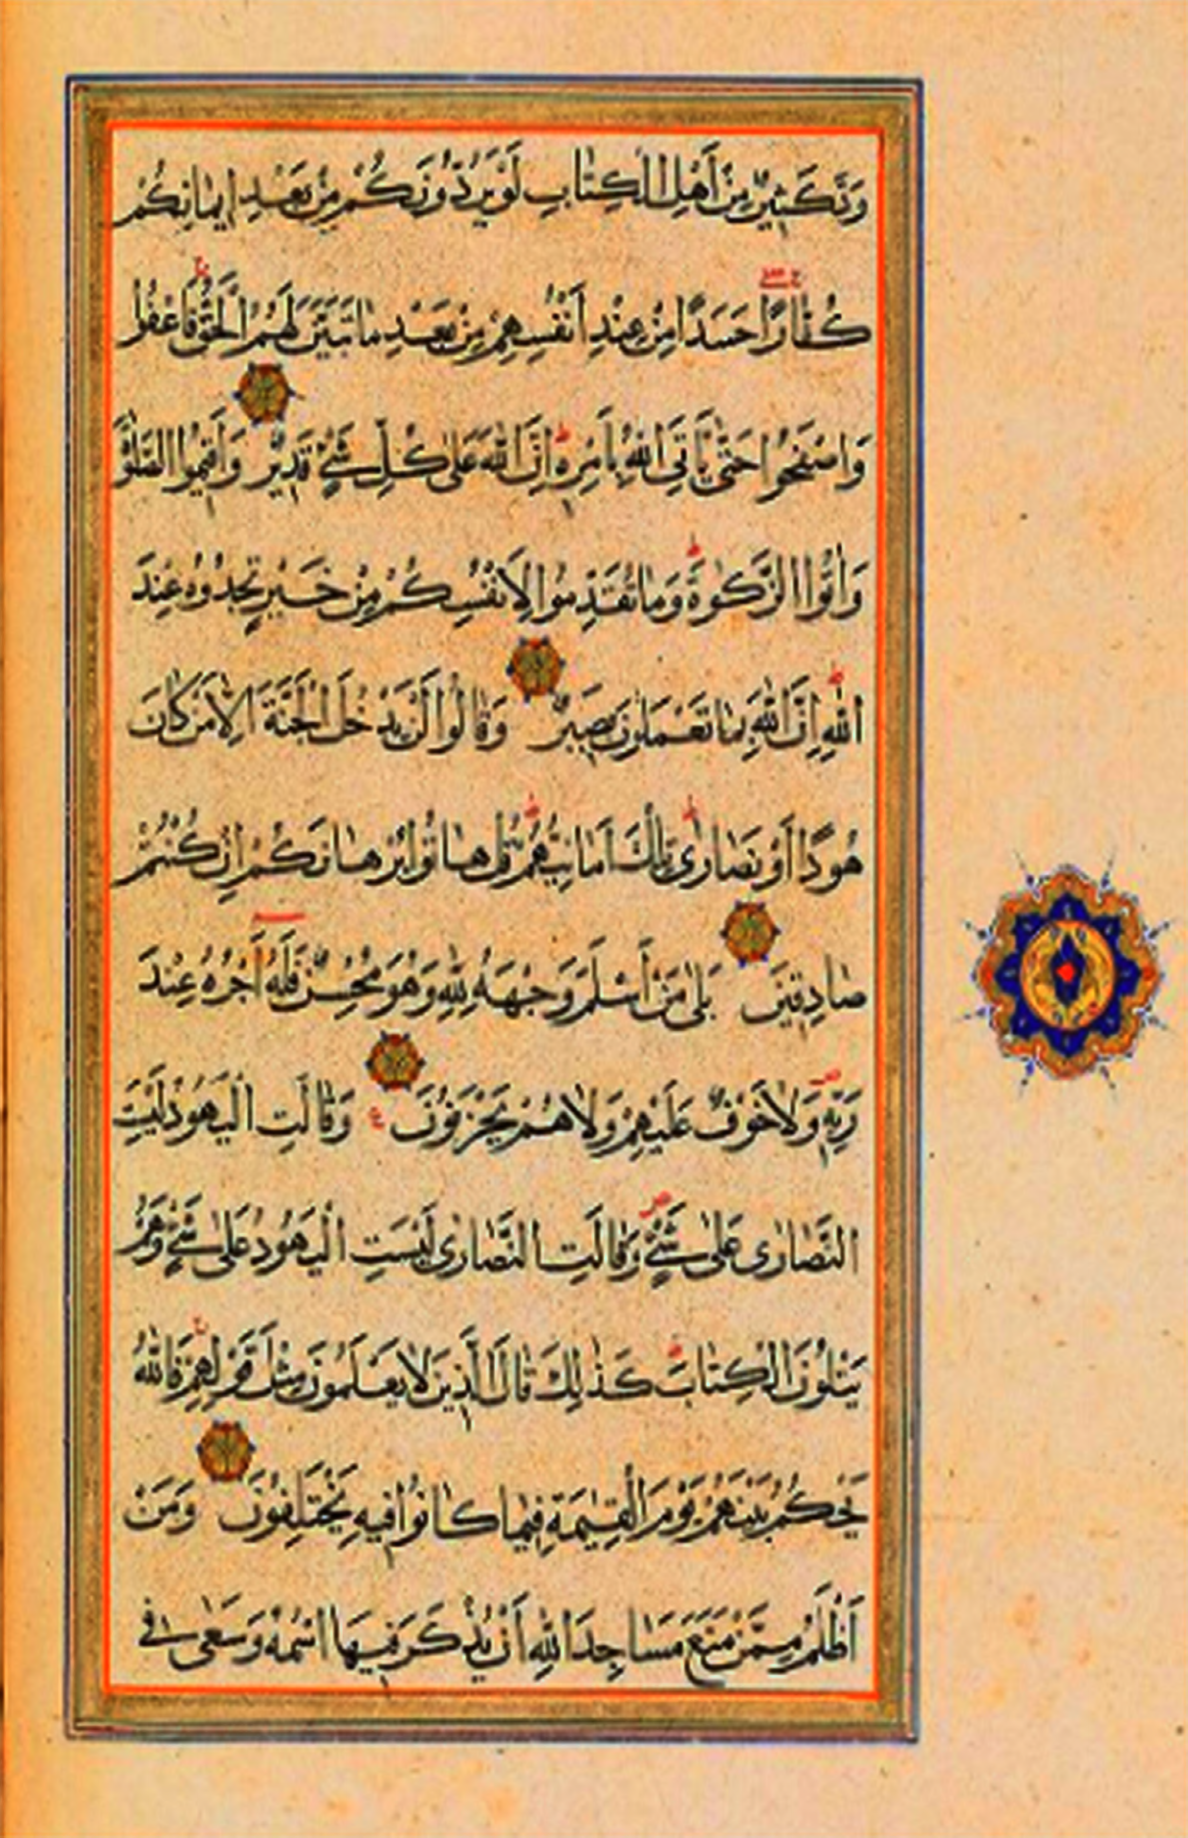 وَدَّ كَثِيرٌ مِنْ أَهْلِ الْكِتَابِ لَوْ يَرُدُّونَكُمْ مِنْ بَعْدِ إِيمَانِكُمْ
كُفَّارًا حَسَدًا مِنْ عِنْدِ أَنْفُسِهِمْ مِنْ بَعْدِ مَا تَبَيَّنَ لَهُمُ الْحَقُّ فَاعْفُوا
وَاصْفَحُوا حَتَّى يَأْتِيَ اللهُ بِأَمْرِهِ إِنَّ اللهَ عَلَى كُلِّ شَيْءٍ قَدِيرٌ وَأَقِيمُوا الصَّلٰوةَ
وَآتُوا الزَّكٰوةَ وَمَا تُقَدِّمُوا لِأَنْفُسِكُمْ مِنْ خَيْرٍ تَجِدُوهُ عِنْدَ
اللهِ إِنَّ اللهَ بِمَا تَعْمَلُونَ بَصِيرٌ وَقَالُوا لَنْ يَدْخُلَ الْجَنَّةَ إِلَّا مَنْ كَانَ
هُودًا أَوْ نَصَارَى تِلْكَ أَمَانِيُّهُمْ قُلْ هَاتُوا بُرْهَانَكُمْ إِنْ كُنْتُمْ
صَادِقِينَ بَلَى مَنْ أَسْلَمَ وَجْهَهُ لِلّٰهِ وَهُوَ مُحْسِنٌ فَلَهُ أَجْرُهُ عِنْدَ
رَبِّهِ وَلَا خَوْفٌ عَلَيْهِمْ وَلَا هُمْ يَحْزَنُونَ وَقَالَتِ الْيَهُودُ لَيْسَتِ
النَّصَارَى عَلَى شَيْءٍ وَقَالَتِ النَّصَارَى لَيْسَتِ الْيَهُودُ عَلَى شَيْءٍ وَهُمْ
يَتْلُونَ الْكِتَابَ كَذٰلِكَ قَالَ الَّذِينَ لَا يَعْلَمُونَ مِثْلَ قَوْلِهِمْ فَاللهُ
يَحْكُمُ بَيْنَهُمْ يَوْمَ الْقِيٰمَةِ فِيمَا كَانُوا فِيهِ يَخْتَلِفُونَ وَمَنْ
أَظْلَمُ مِمَّنْ مَنَعَ مَسَاجِدَ اللهِ أَنْ يُذْكَرَ فِيهَا اسْمُهُ وَسَعَى فِي